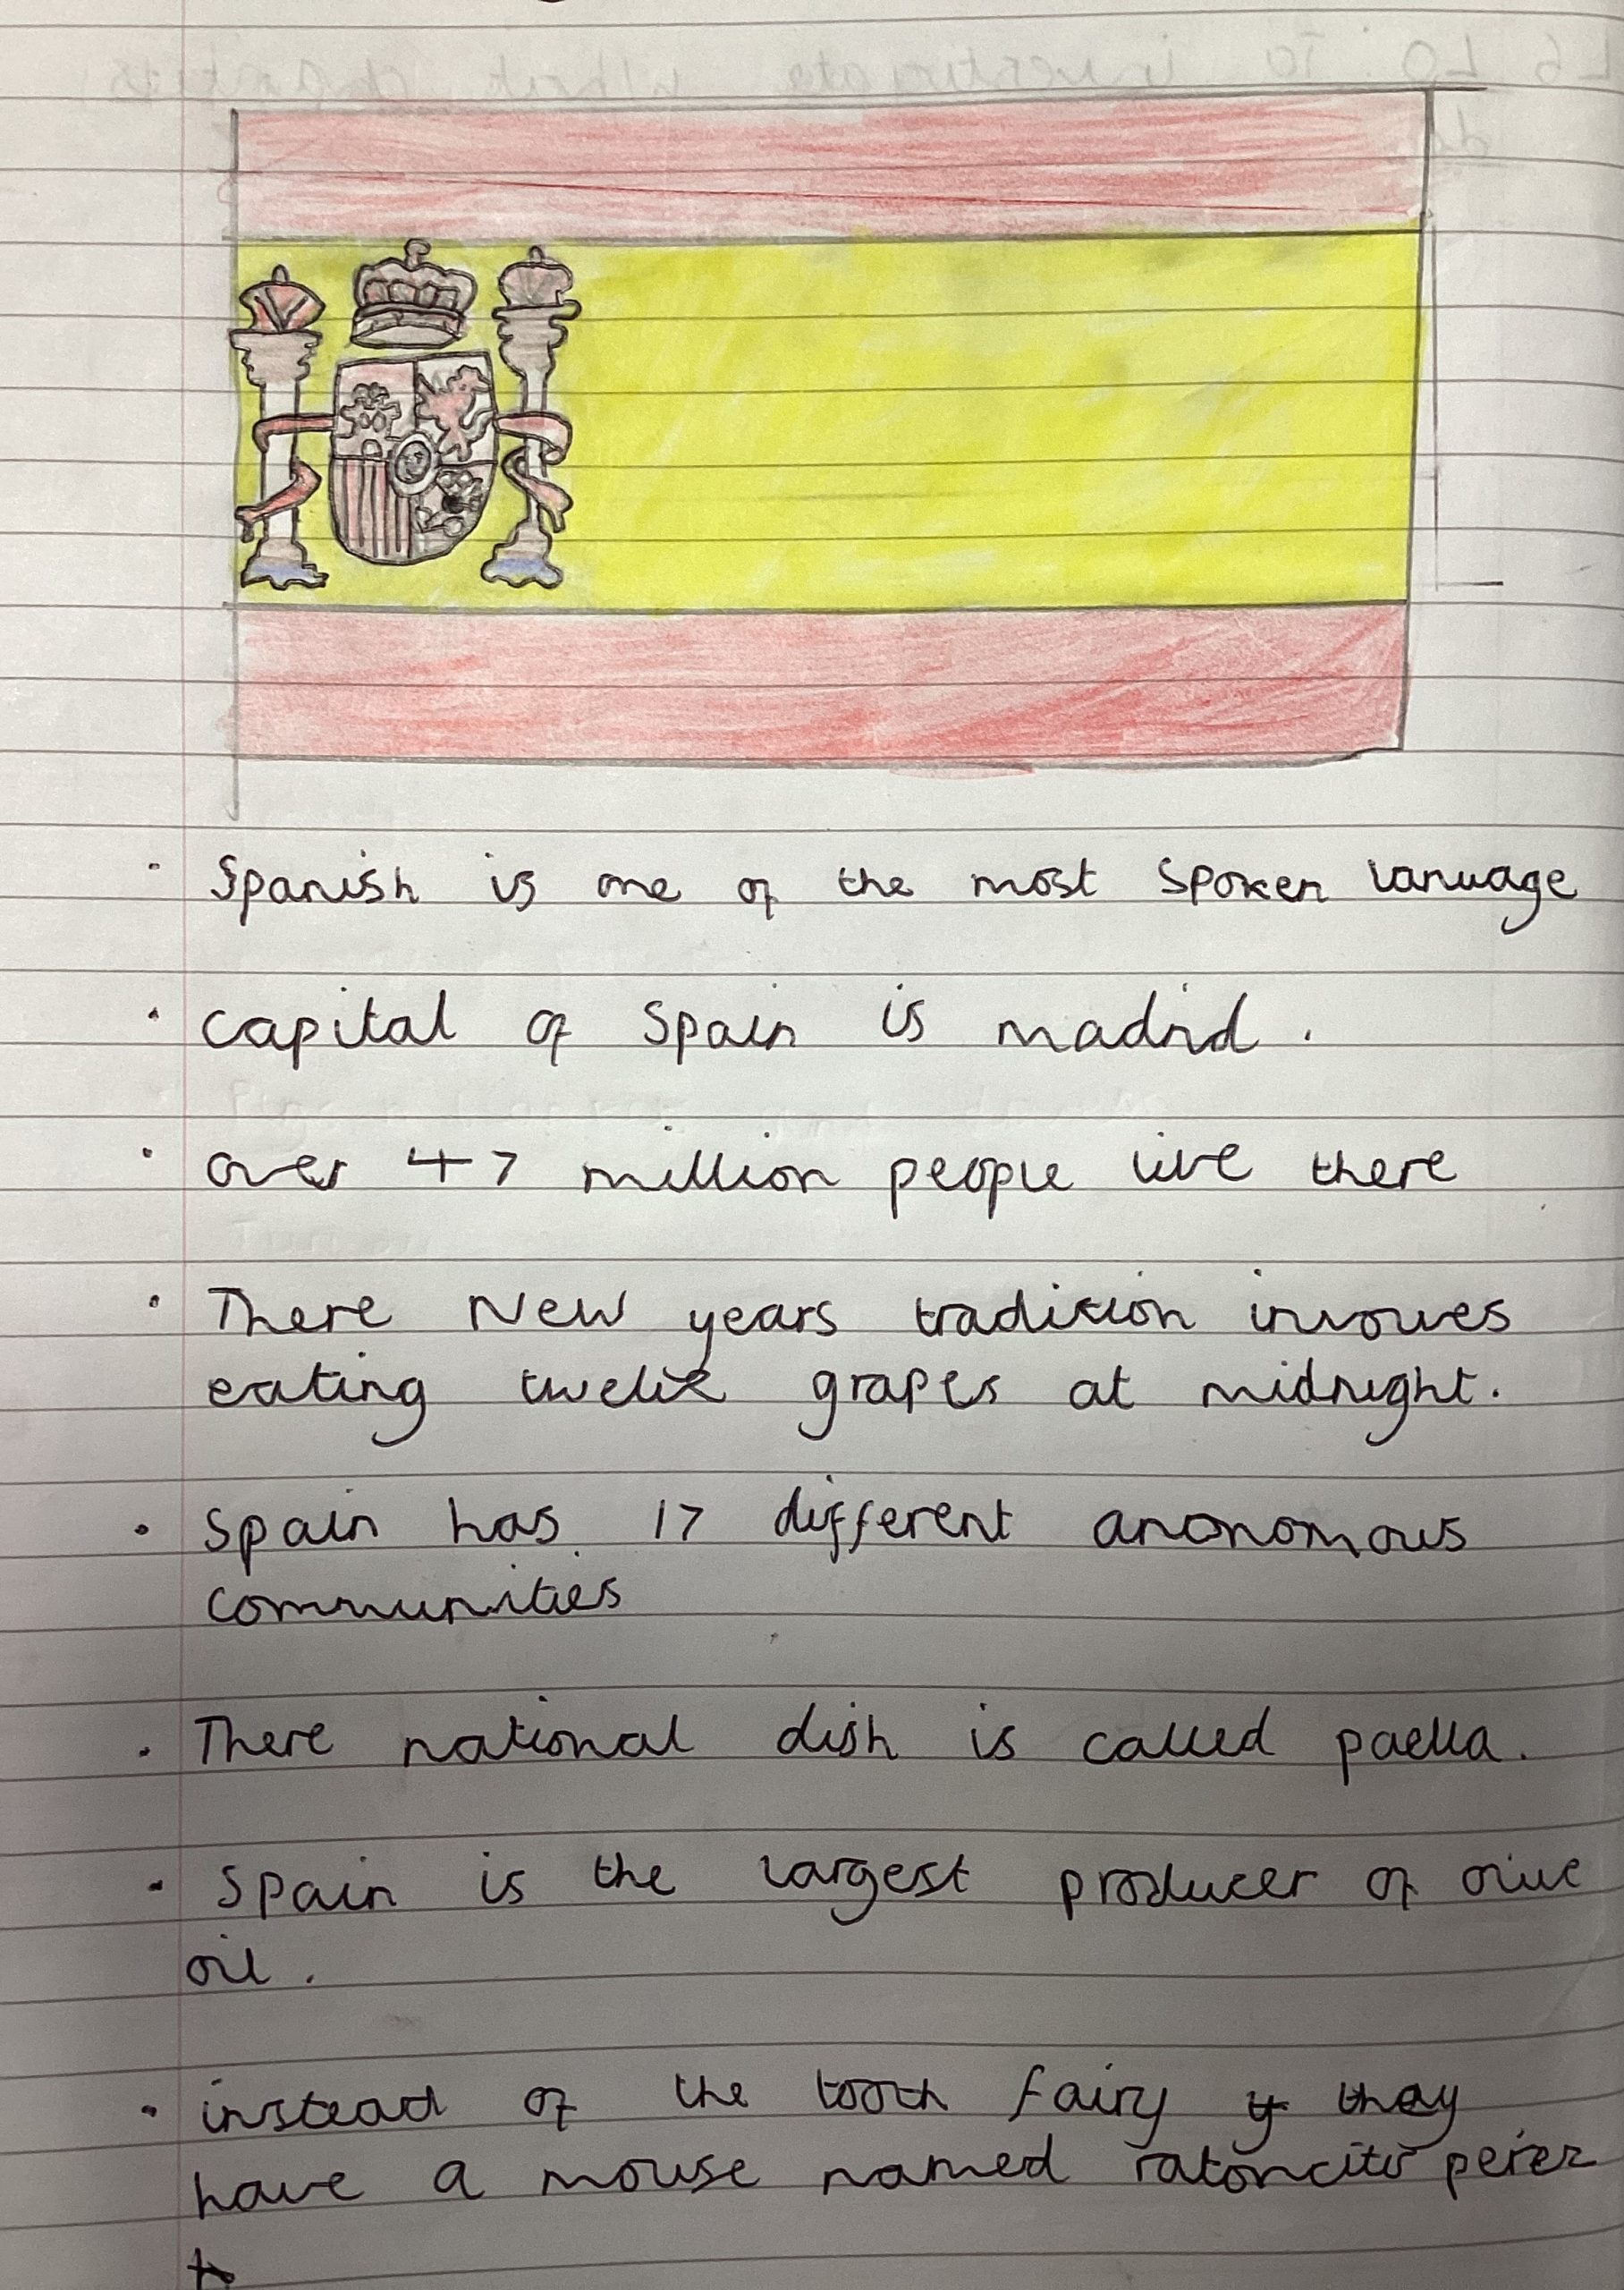 · Spanish is one of the most spoken lanuage
· capital of Spain is madrid .
· over 47 million people live there
· There New years tradition involves
eating twelve grapes at midnight.
· Spain has 17 different anonomous
communities
· There national dish is called paella.
· Spain is the largest producer of olive
oil .
· instead of the tooth fairy they
have a mouse named ratoncito perez